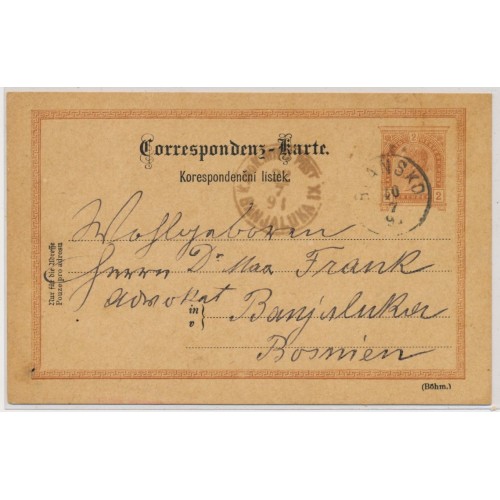 Correspondenz-Karte.
Korespondenční lístek.
BANJALUKA IX
91
2
2
Wohlgeboren
Herrn Dr Max Frank
Advokat
in
v
Banjaluka
Bosnien
Nur für die Adresse
Pouze pro adresu
(Böhm.)